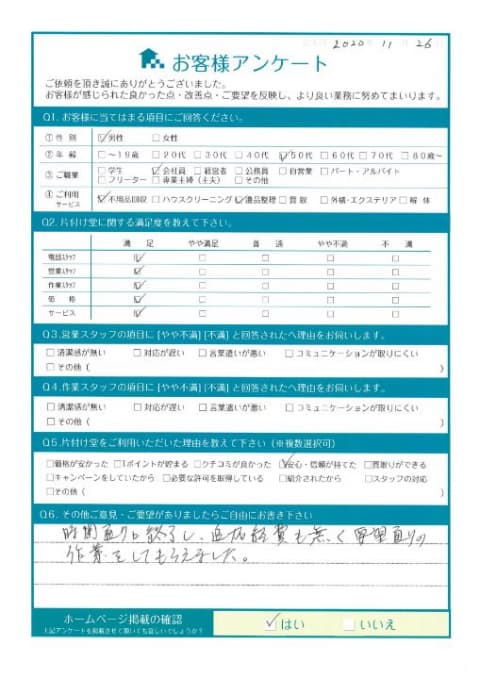 2020 11 26
お客様アンケート
ご依頼を頂き誠にありがとうございました。
お客様が感じられた良かった点・改善点・ご要望を反映し、より良い業務に努めてまいります。
Q1. お客様に当てはまる項目にご回答ください。
①性 別 ☑男性 □女性
②年 齢 □~19歳 □20代 □30代 □40代 ☑50代 □60代 □70代 □80歳~
③ご職業 □学生 ☑会社員 □経営者 □公務員 □自営業 □パート・アルバイト
□フリーター □専業主婦(主夫) □その他
④ご利用サービス ☑不用品回収 □ハウスクリーニング ☑遺品整理 □買取 □外構・エクステリア □解体
Q2. 片付け堂に関する満足度を教えて下さい。
満 足 やや満足 普 通 やや不満 不 満
電話スタッフ ☑ □ □ □ □
営業スタッフ ☑ □ □ □ □
作業スタッフ ☑ □ □ □ □
価 格 ☑ □ □ □ □
サービス ☑ □ □ □ □
Q3.営業スタッフの項目に[やや不満][不満]と回答されたへ理由をお伺いします。
□清潔感が無い □対応が遅い □言葉遣いが悪い □コミュニケーションが取りにくい
□その他( )
Q4.作業スタッフの項目に[やや不満][不満]と回答されたへ理由をお伺いします。
□清潔感が無い □対応が遅い □言葉遣いが悪い □コミュニケーションが取りにくい
□その他( )
Q5.片付け堂をご利用いただいた理由を教えて下さい(※複数選択可)
□価格が安かった □Tポイントが貯まる □クチコミが良かった ☑安心・信頼が持てた □買取りができる
□キャンペーンをしていたから □必要な許可を取得している □紹介されたから □スタッフの対応
□その他( )
Q6. その他ご意見・ご要望がありましたらご自由にお書き下さい
時間通り終了し、追加経費も無く 希望通りの
作業をしてもらえました。
ホームページ掲載の確認
上記アンケートを掲載させて頂いても宜しいでしょうか?
☑はい □いいえ